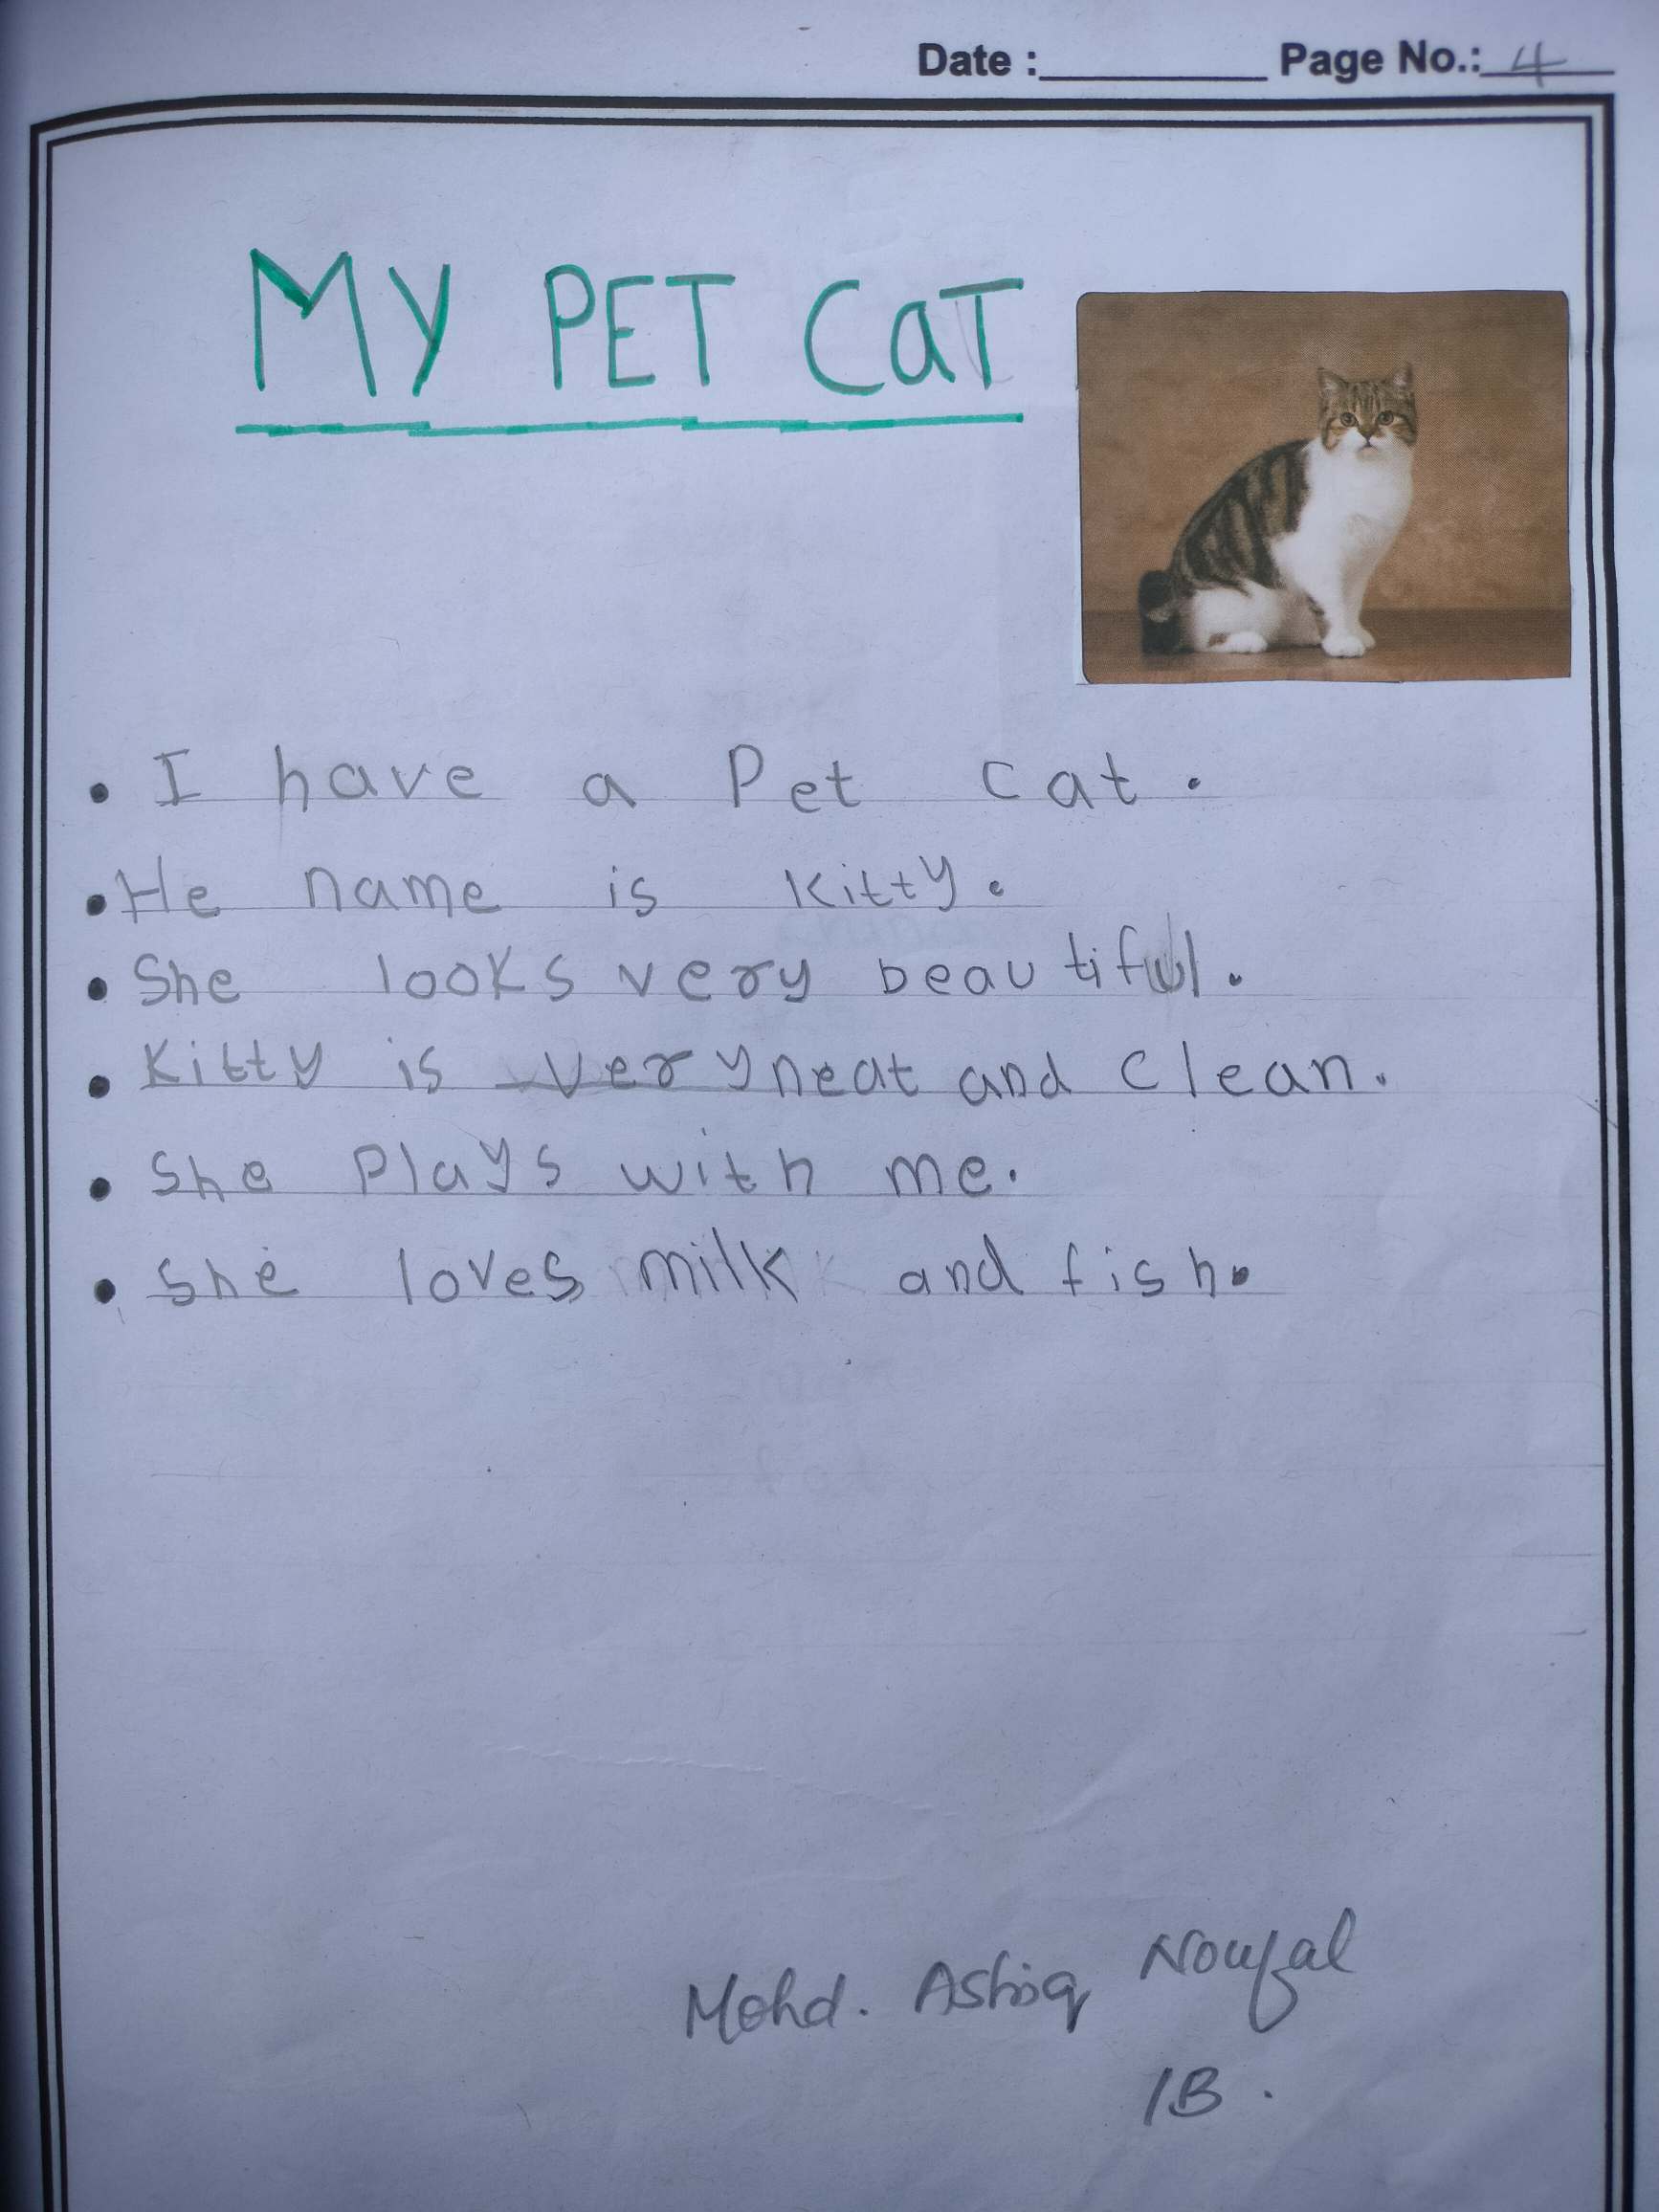 Date : Page No.: 4
MY PET CaT
• I have a Pet cat.
• He name is Kitty.
• She looks very beautiful.
• Kitty is very neat and clean.
• She Plays with me.
• She loves milk and fish.
Mohd. Ashiq Noufal
1B.